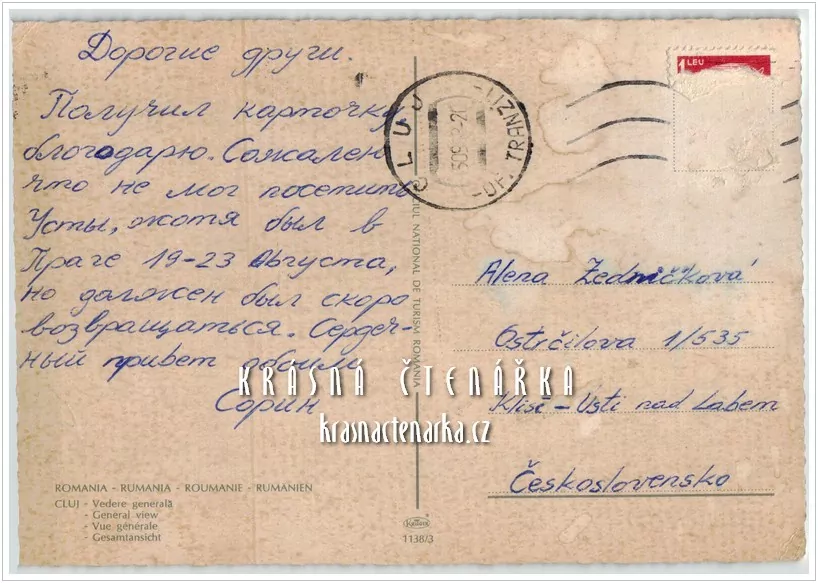 Дорогие други.
Получил карточку
благодарю. Сожален
что не мог посетить
Усты, жотя был в
Праге 19-23 Августа,
но должен был скоро
возвращаться. Сердеч-
ный привет обоим
Сорин
ROMANIA - RUMANIA - ROUMANIE - RUMANIEN
CLUJ - Vedere generală
- General view
- Vue générale
- Gesamtansicht
CIUL NATIONAL DE TURISM ROMANIA
Kruger
1138/3
CLUJ
OF. TRH
1 LEU
Alena Zedničková
Ostrčilova 1/535
Klíše - Usti nad Labem
Československo
KRÁSNÁ ČTENÁŘKA
krasnactenarka.cz